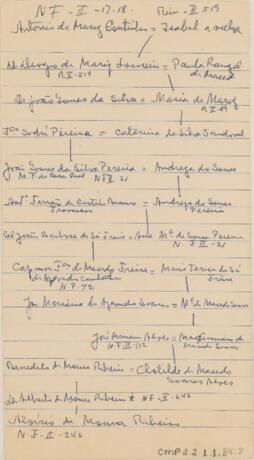 N F - II - 17-18. Rim - II 519
Antonio de Mariz Coutinho = Isabel a velha
de Mariz Loureiro = Paula Rangel
R II 519 de Macedo
D. João Gomes da Silva = Maria de Mariz
R II
Fco Sodré Pereira = Caterina da Silva Sandoval
João Gomes da Silva Pereira = Andreza de Souza
M. F. da Casa Real N F II 21
Fernão de Castelo Branco = Andreza de Souza
Pereira
Cel João Barbosa de Sá Freire = Ana Mª de Souza Pereira
N. F. II - 21
Cap mor Fco de Macedo Freire = Maria Teresa de Sá
de Azeredo Coutinho Freire
N. F.
Mariano de Azeredo Soares = Mª de Macedo Soares
José Alves = Maximiana de
N. F. II - 112 Macedo Soares
Benedito de Moura Ribeiro = Clotilde de Macedo
Soares Alves
Alberto de Moura Ribeiro = N F - II - 246
Aloisio de Moura Ribeiro
N. F. II - 246
CMP 2.2.1.1.84.2